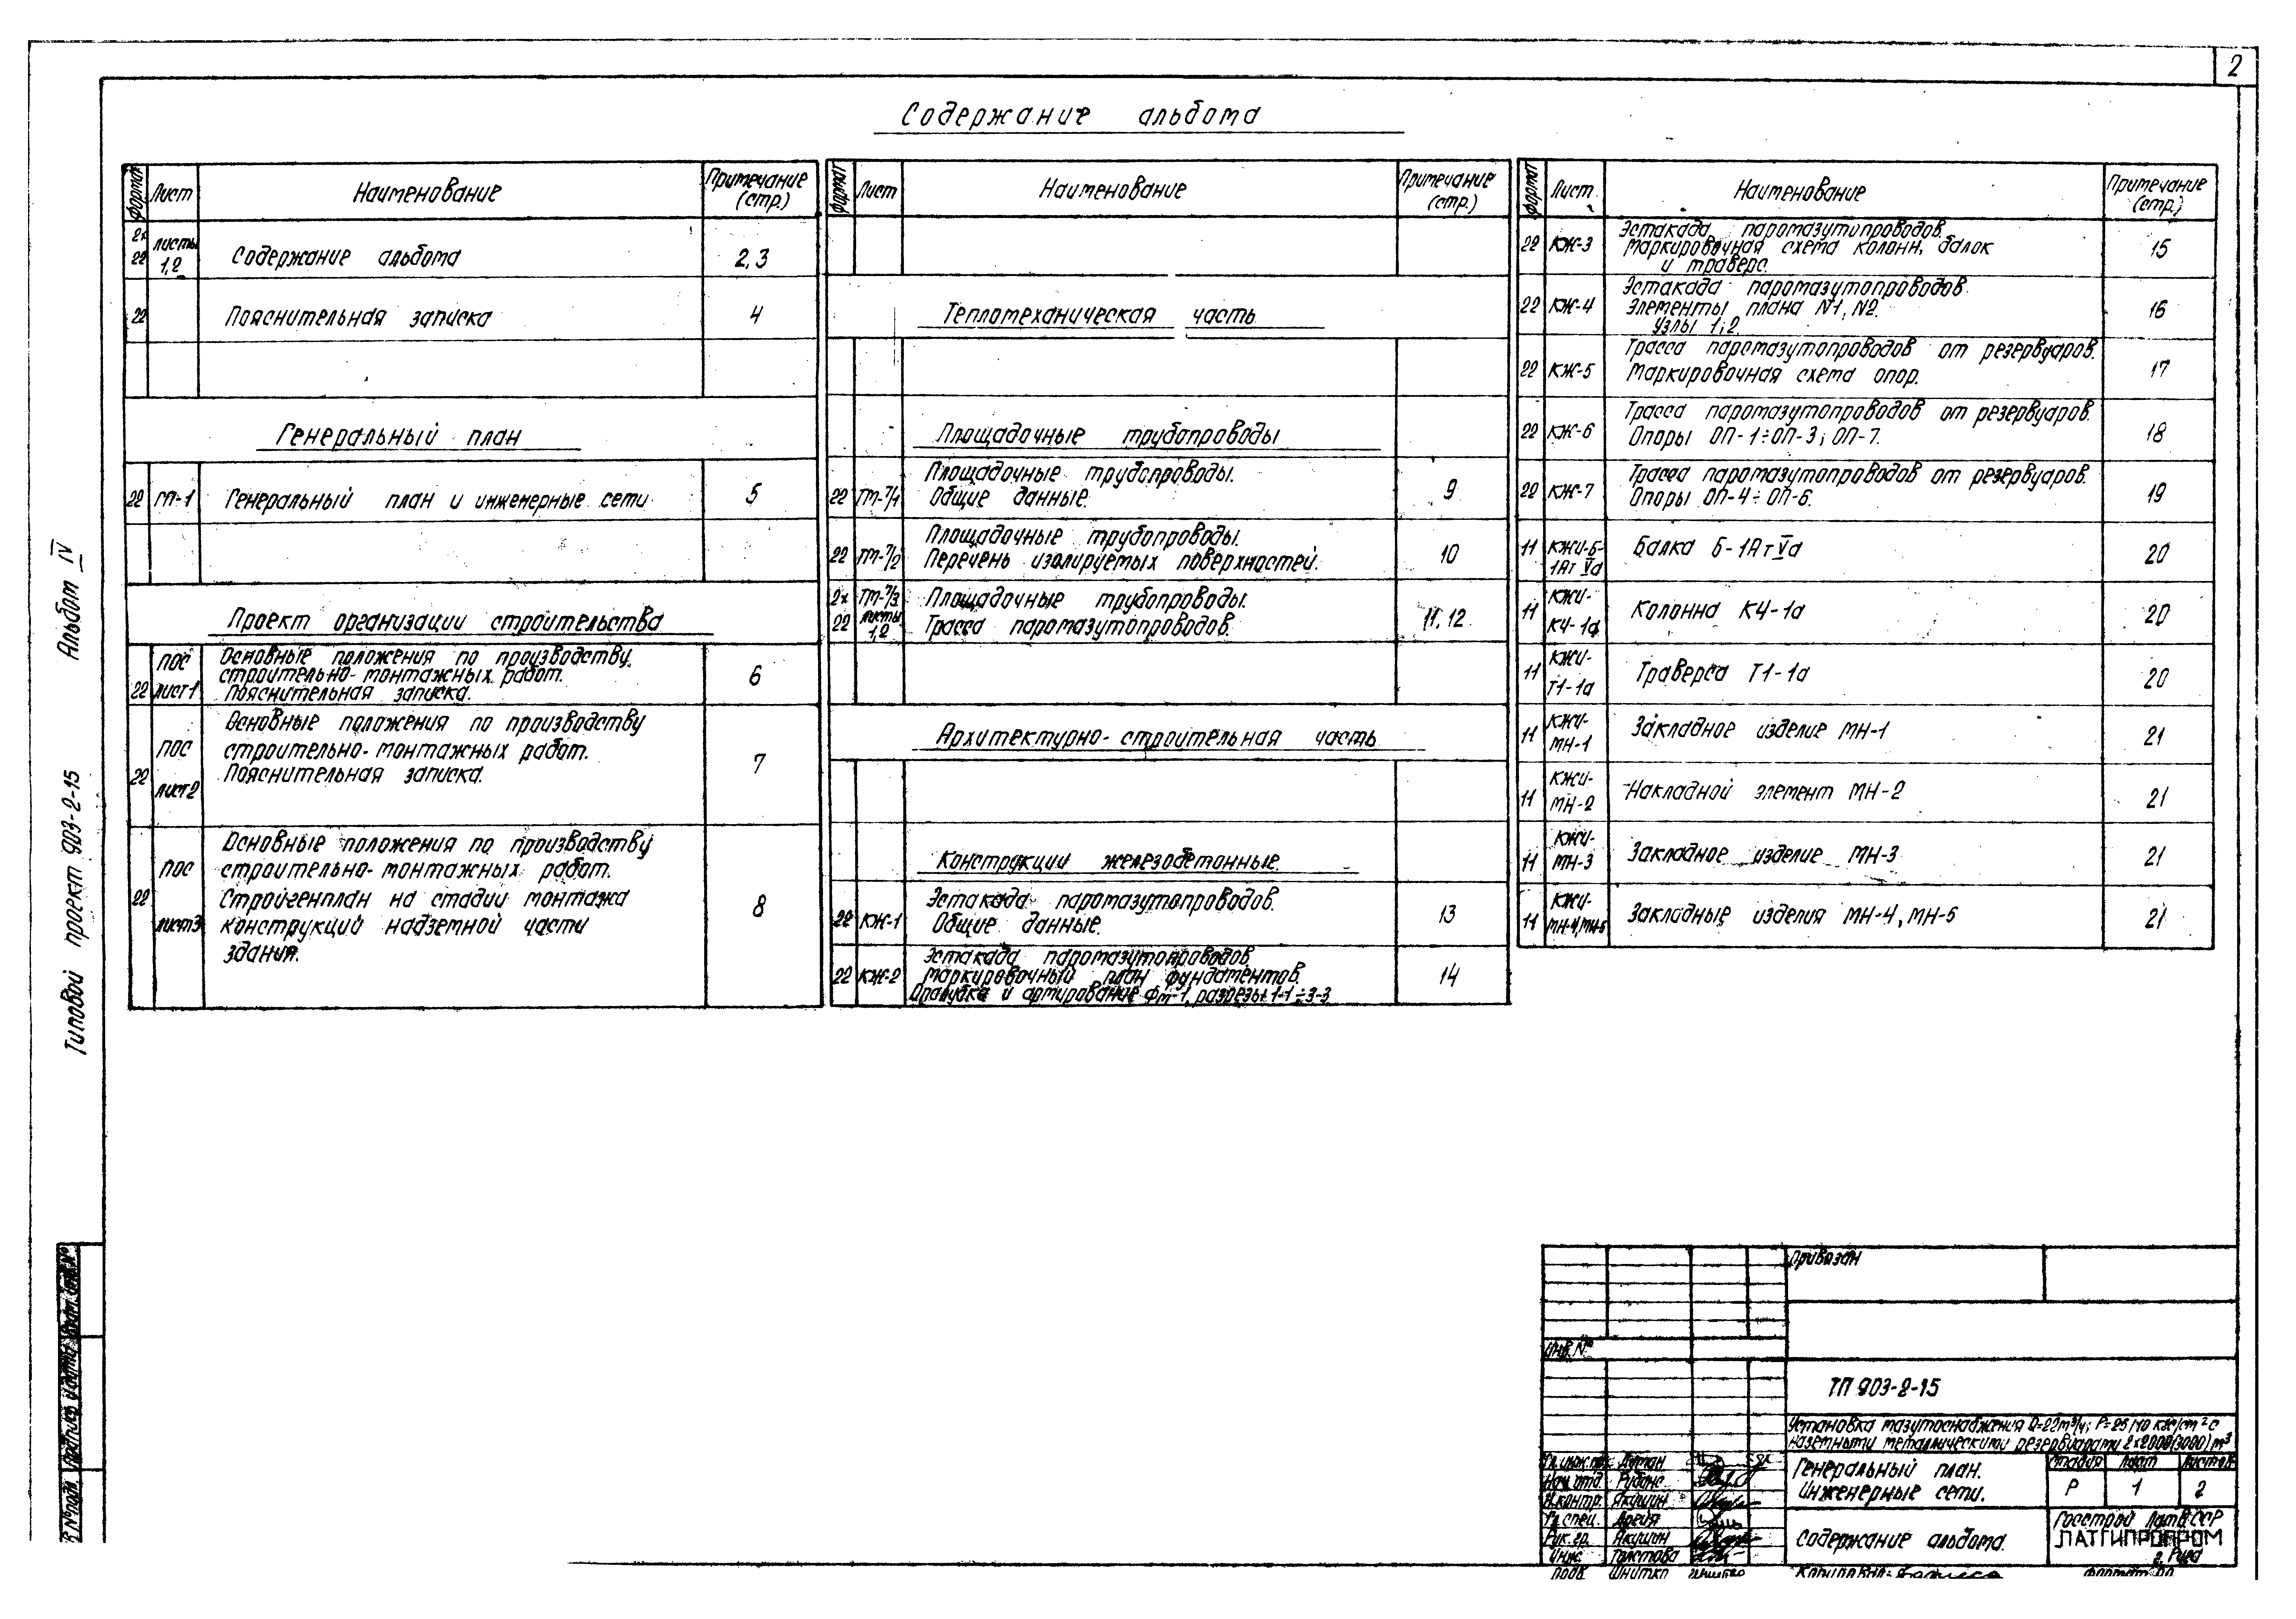 2
Содержание альбома
Формат Лист Наименование Примечание (стр.)
2х22 листы 1,2 Содержание альбома 2,3
22 Пояснительная записка 4
Генеральный план
22 ГП-1 Генеральный план и инженерные сети 5
Проект организации строительства
22 ПОС лист1 Основные положения по производству
строительно-монтажных работ.
Пояснительная записка. 6
22 ПОС лист2 Основные положения по производству
строительно-монтажных работ.
Пояснительная записка. 7
22 ПОС лист3 Основные положения по производству
строительно-монтажных работ.
Стройгенплан на стадии монтажа
конструкций надземной части
здания. 8
Формат Лист Наименование Примечание (стр.)
Тепломеханическая часть
Площадочные трубопроводы
22 ТМ-7/1 Площадочные трубопроводы.
Общие данные. 9
22 ТМ-7/2 Площадочные трубопроводы.
Перечень изолируемых поверхностей. 10
2х22 ТМ-7/3 листы 1,2 Площадочные трубопроводы.
Трасса паромазутопроводов. 11,12
Архитектурно-строительная часть
Конструкции железобетонные.
22 КЖ-1 Эстакада паромазутопроводов.
Общие данные. 13
22 КЖ-2 Эстакада паромазутопроводов
маркировочный план фундаментов.
Опалубка и армирование Фм-1, разрезы 1-1÷3-3 14
Формат Лист Наименование Примечание (стр.)
22 КЖ-3 Эстакада паромазутипроводов.
Маркировочная схема колонн, балок
и траверс. 15
22 КЖ-4 Эстакада паромазутопроводов
Элементы плана N1, N2.
Узлы 1; 2. 16
22 КЖ-5 Трасса паромазутопроводов от резервуаров.
Маркировочная схема опор. 17
22 КЖ-6 Трасса паромазутопроводов от резервуаров.
Опоры ОП-1÷ОП-3; ОП-7. 18
22 КЖ-7 Трасса паромазутопроводов от резервуаров.
Опоры ОП-4÷ОП-6. 19
11 КЖИ-Б-1АтVа Балка Б-1АтVа 20
11 КЖИ-К4-1а Колонна К4-1а 20
11 КЖИ-Т1-1а Траверса Т1-1а 20
11 КЖИ-МН-1 Закладное изделие МН-1 21
11 КЖИ-МН-2 Накладной элемент МН-2 21
11 КЖИ-МН-3 Закладное изделие МН-3 21
11 КЖИ-МН-4,МН-5 Закладные изделия МН-4, МН-5 21
Типовой проект 903-2-15 Альбом IV
Привязан
Инв.№
ТП 903-2-15
Установка мазутоснабжения Q=22м³/ч; Р=25/10 кгс/см² с
наземными металлическими резервуарами 2х2000(3000)м³
Генеральный план.
Инженерные сети.
Стадия Лист Листов
Р 1 2
Содержание альбома.
Госстрой Латв.ССР
ЛАТГИПРОПРОМ
г. Рига
Гл.инж.пр.
Нач.отд.
Н.контр. Якушин
Гл.спец.
Рук.гр. Якушин
Инж. Толстова
Шнитко
Копировал: